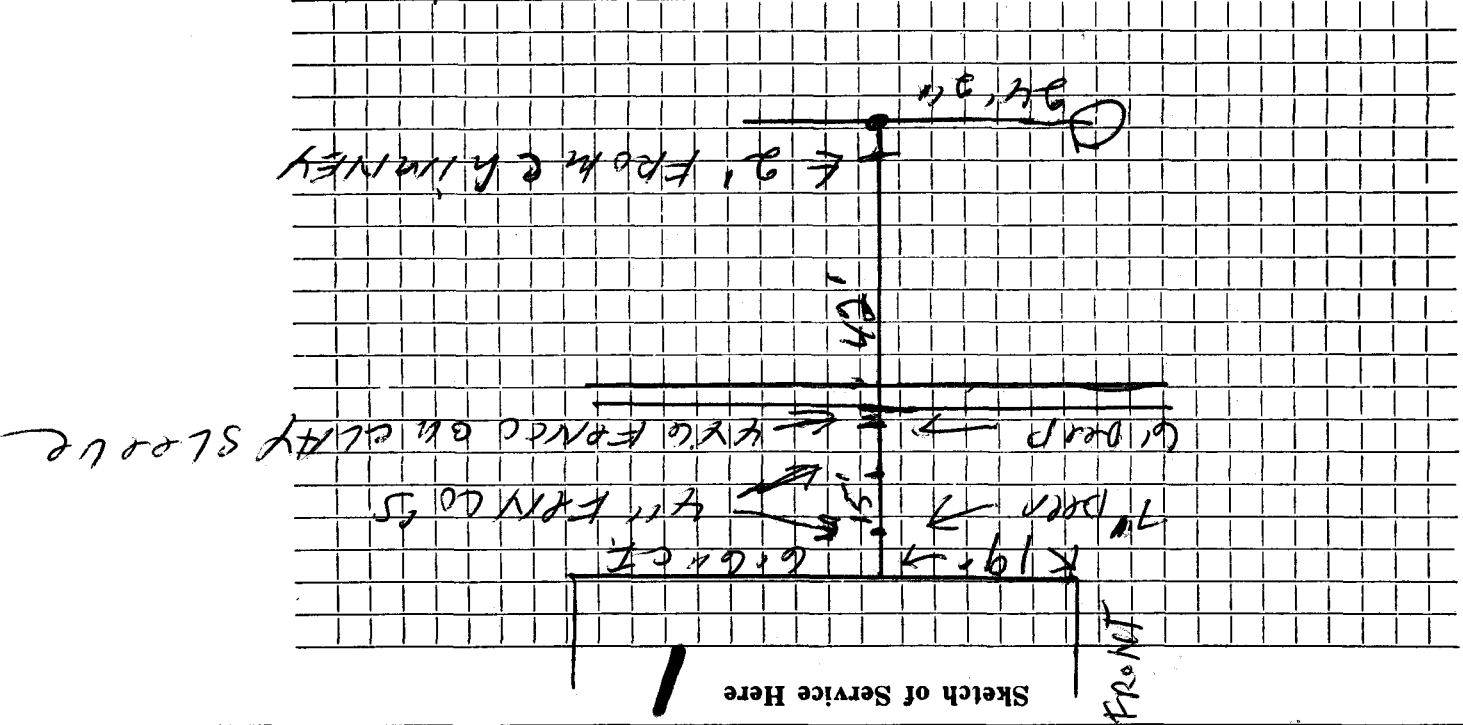 Sketch of Service Here
FRONT
6'6" CI
7" Deep
15'
4" FRNCO'S
6' Deep
4X6 FRNCO ON CLAY SLeeVe
42'
2' FROM ChIMNEY
24'2"